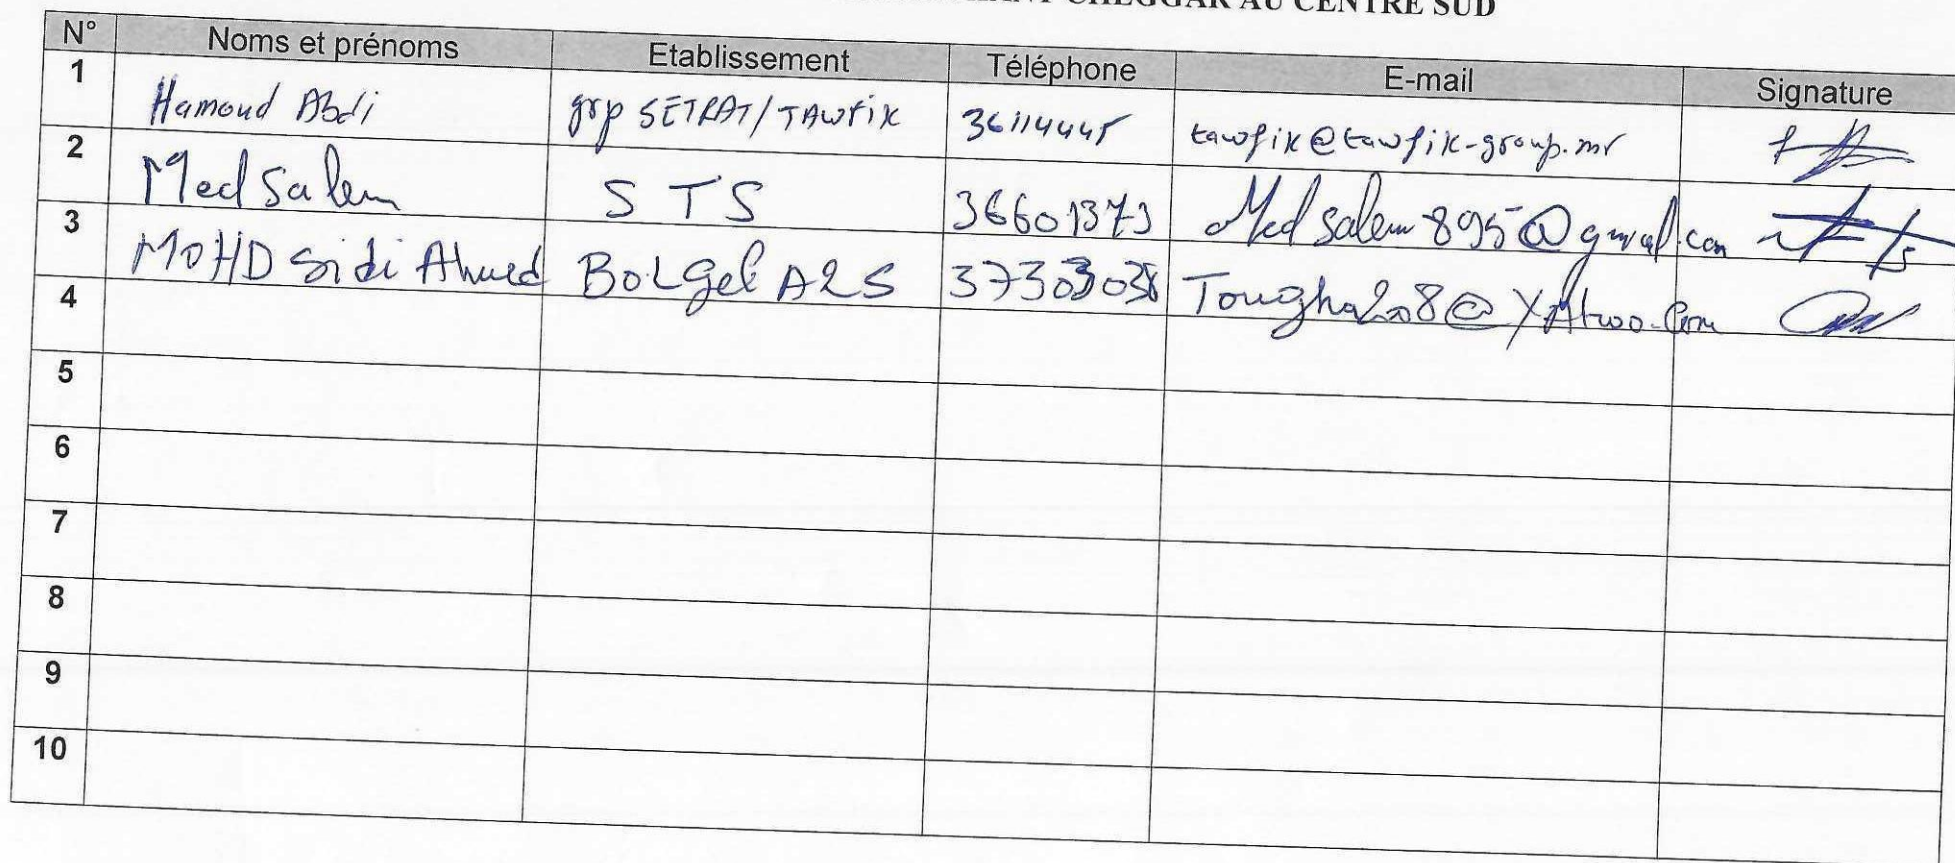 CHEGGAR AU CENTRE SUD
N° Noms et prénoms Etablissement Téléphone E-mail Signature
1 Hamoud Abdi grp SETRAT/TAWFIK 36114445 tawfik@tawfik-group.mr
2 Med Salem STS 36601373 Medsalem895@gmail.com
3 MOHD Sidi Ahmed A2S 37303038
4
5
6
7
8
9
10